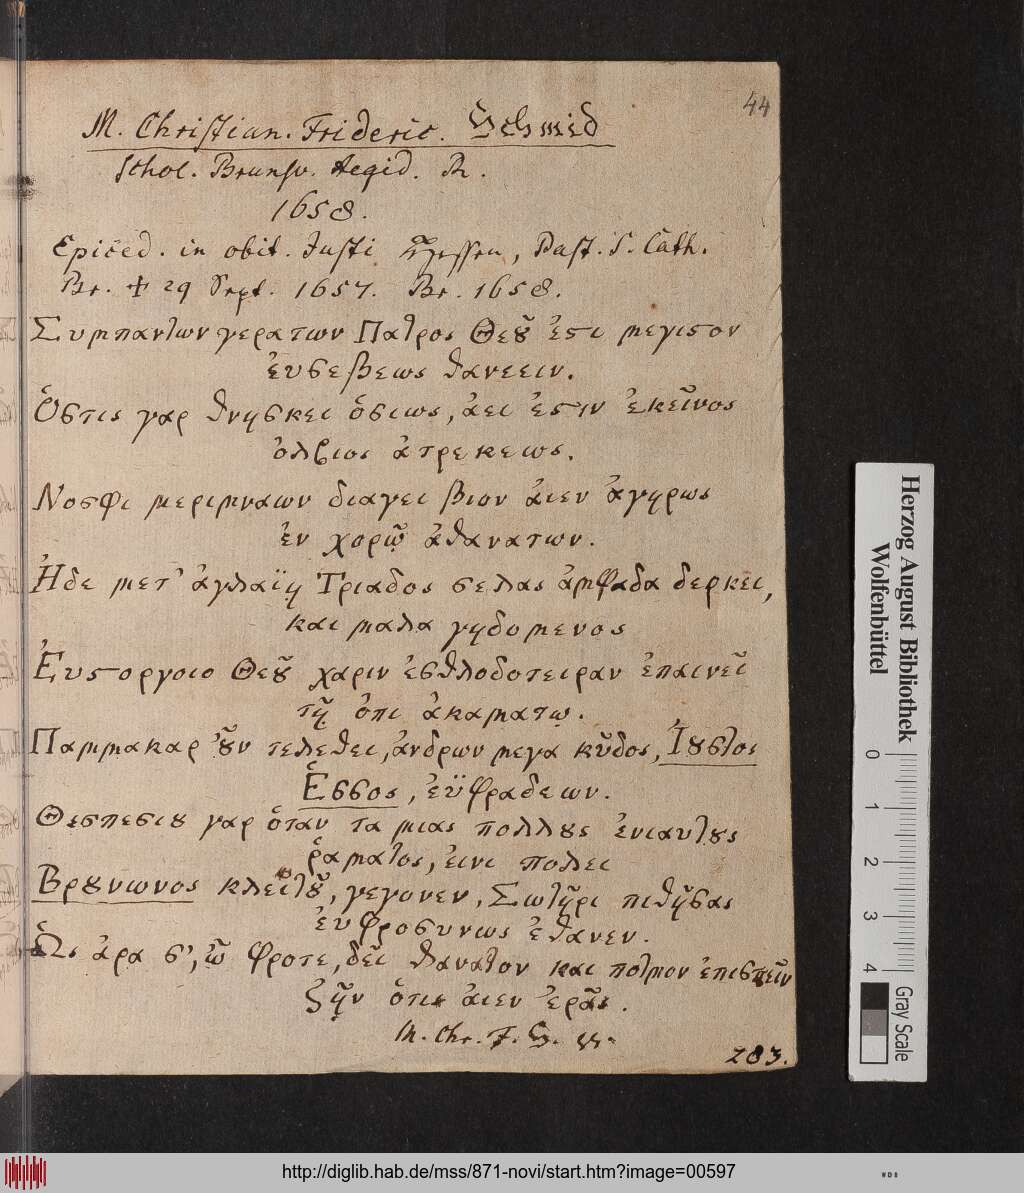 44
M. Christian. Frideric. Schmid
Schol. Brunsv. Aegid. R.
1658.
Epiced. in obit. Justi Hessen, Past. S. Cath.
Br. ✝ 29 Sept. 1657. Br. 1658.
Συμπαντων γερατων Πατρος Θεȣ͂ ἐστι μεγιστον
ἐυσεβεως θανεειν.
Ὁστις γαρ θνησκει ὁσιως, ἀει ἐστιν ἐκεῖνος
ὀλβιος ἀτρεκεως.
Νοσφι μεριμναων διαγει βιον ἀιεν ἀγηρως
ἐν χορῷ ἀθανατων.
Ἠδε μετ' ἀγλαϊῃ Τριαδος σελας ἀμφαδα δερκει,
και μαλα γηδομενος
Ἐυστοργοιο Θεȣ͂ χαριν ἐσθλοδοτειραν ἐπαινεῖ
τῇ ὀπι ἀκαματῳ.
Παμμακαρ ȣ͂ν τελεθει, ἀνδρων μεγα κῦδος, Ἰȣστος
Ἑσσος, ἐϋφραδεων.
Θεσπεσιȣ γαρ ὁταν τα μιας πολλȣς ἐνιαυτȣς
ῥαματος, ἐινι πολει
Βρȣνωνος κλειτȣ͂, γεγονεν, Σωτῆρι πιθῆσας
ἐυφροσυνως ἐθανεν.
Ὡς ἀρα σ', ὦ φροτε, δεῖ θανατον και ποτμον ἐπισπεῖν
ζῇν ὁτις ἀιεν ἐρᾷς.
M. Chr. F. S.
283.
Herzog August Bibliothek
Wolfenbüttel
0 1 2 3 4
Gray Scale
http://diglib.hab.de/mss/871-novi/start.htm?image=00597
WDB